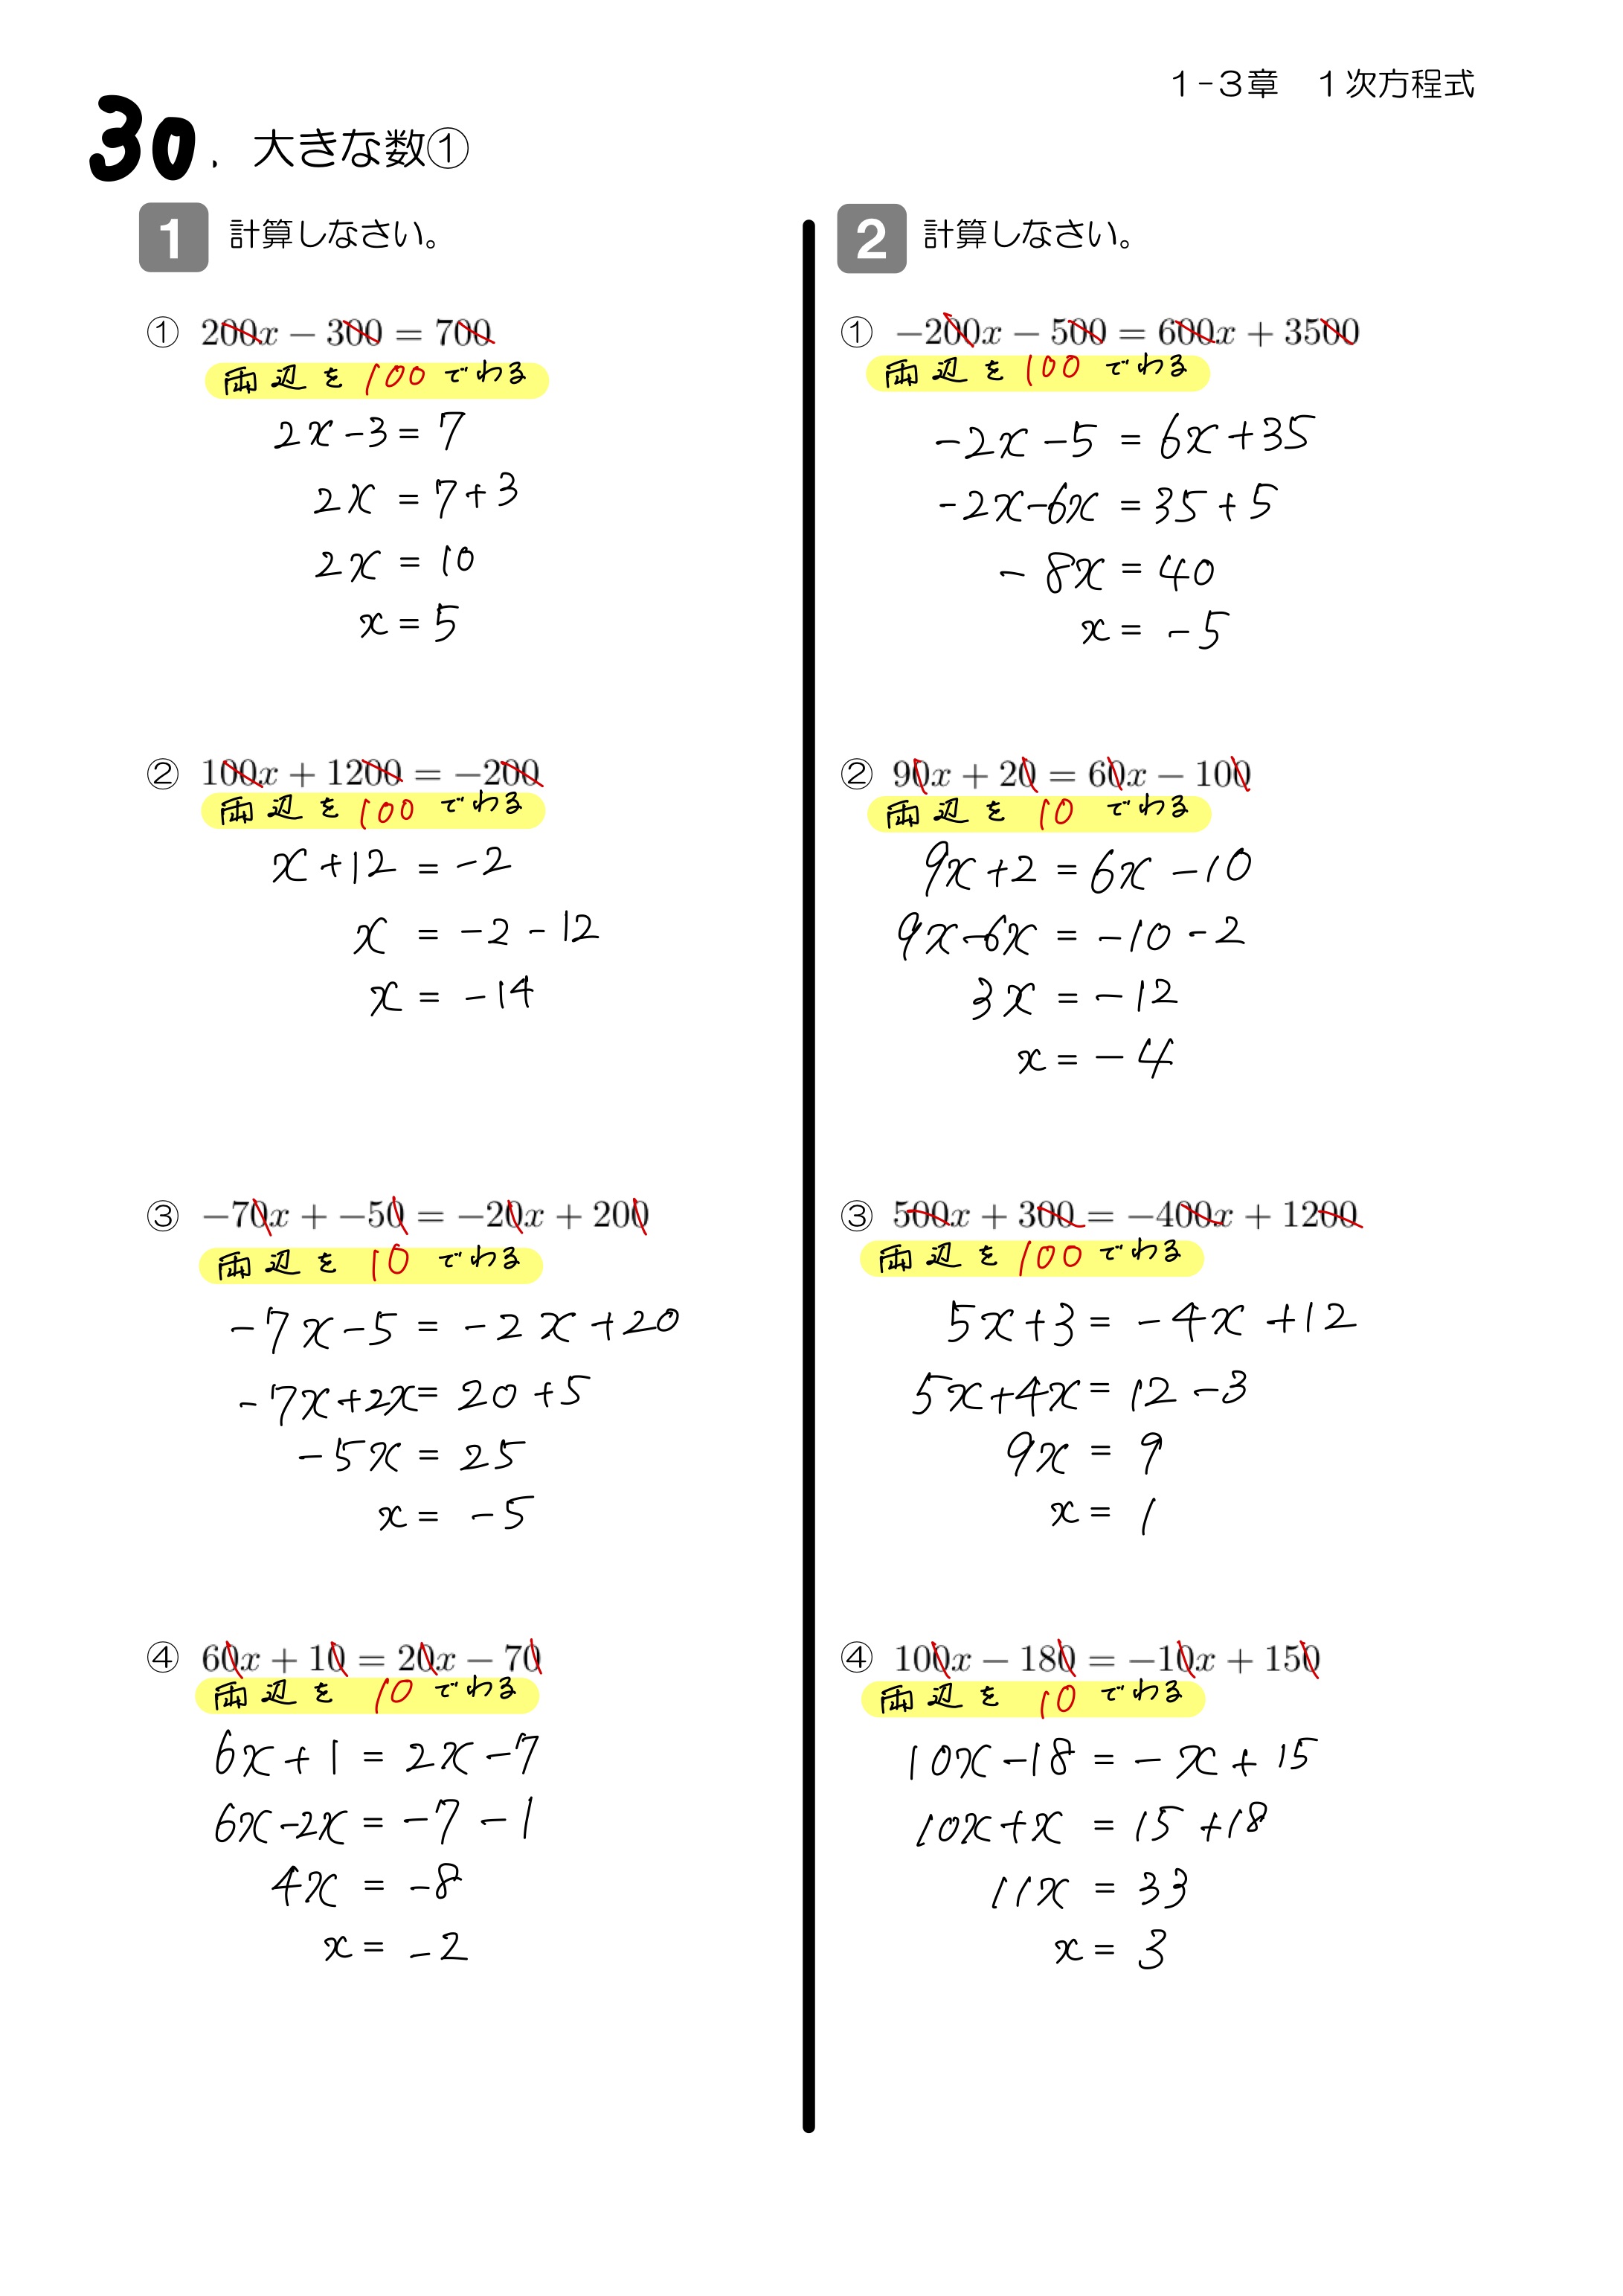 1-3章　1次方程式
30. 大きな数①
1 計算しなさい。
① 200x − 300 = 700
両辺を100でわる
2x-3=7
2x=7+3
2x=10
x=5
② 100x + 1200 = −200
両辺を100でわる
x+12=-2
x=-2-12
x=-14
③ −70x + −50 = −20x + 200
両辺を10でわる
-7x-5=-2x+20
-7x+2x=20+5
-5x=25
x=-5
④ 60x + 10 = 20x − 70
両辺を10でわる
6x+1=2x-7
6x-2x=-7-1
4x=-8
x=-2
2 計算しなさい。
① −200x − 500 = 600x + 3500
両辺を100でわる
-2x-5=6x+35
-2x-6x=35+5
-8x=40
x=-5
② 90x + 20 = 60x − 100
両辺を10でわる
9x+2=6x-10
9x-6x=-10-2
3x=-12
x=-4
③ 500x + 300 = −400x + 1200
両辺を100でわる
5x+3=-4x+12
5x+4x=12-3
9x=9
x=1
④ 100x − 180 = −10x + 150
両辺を10でわる
10x-18=-x+15
10x+x=15+18
11x=33
x=3